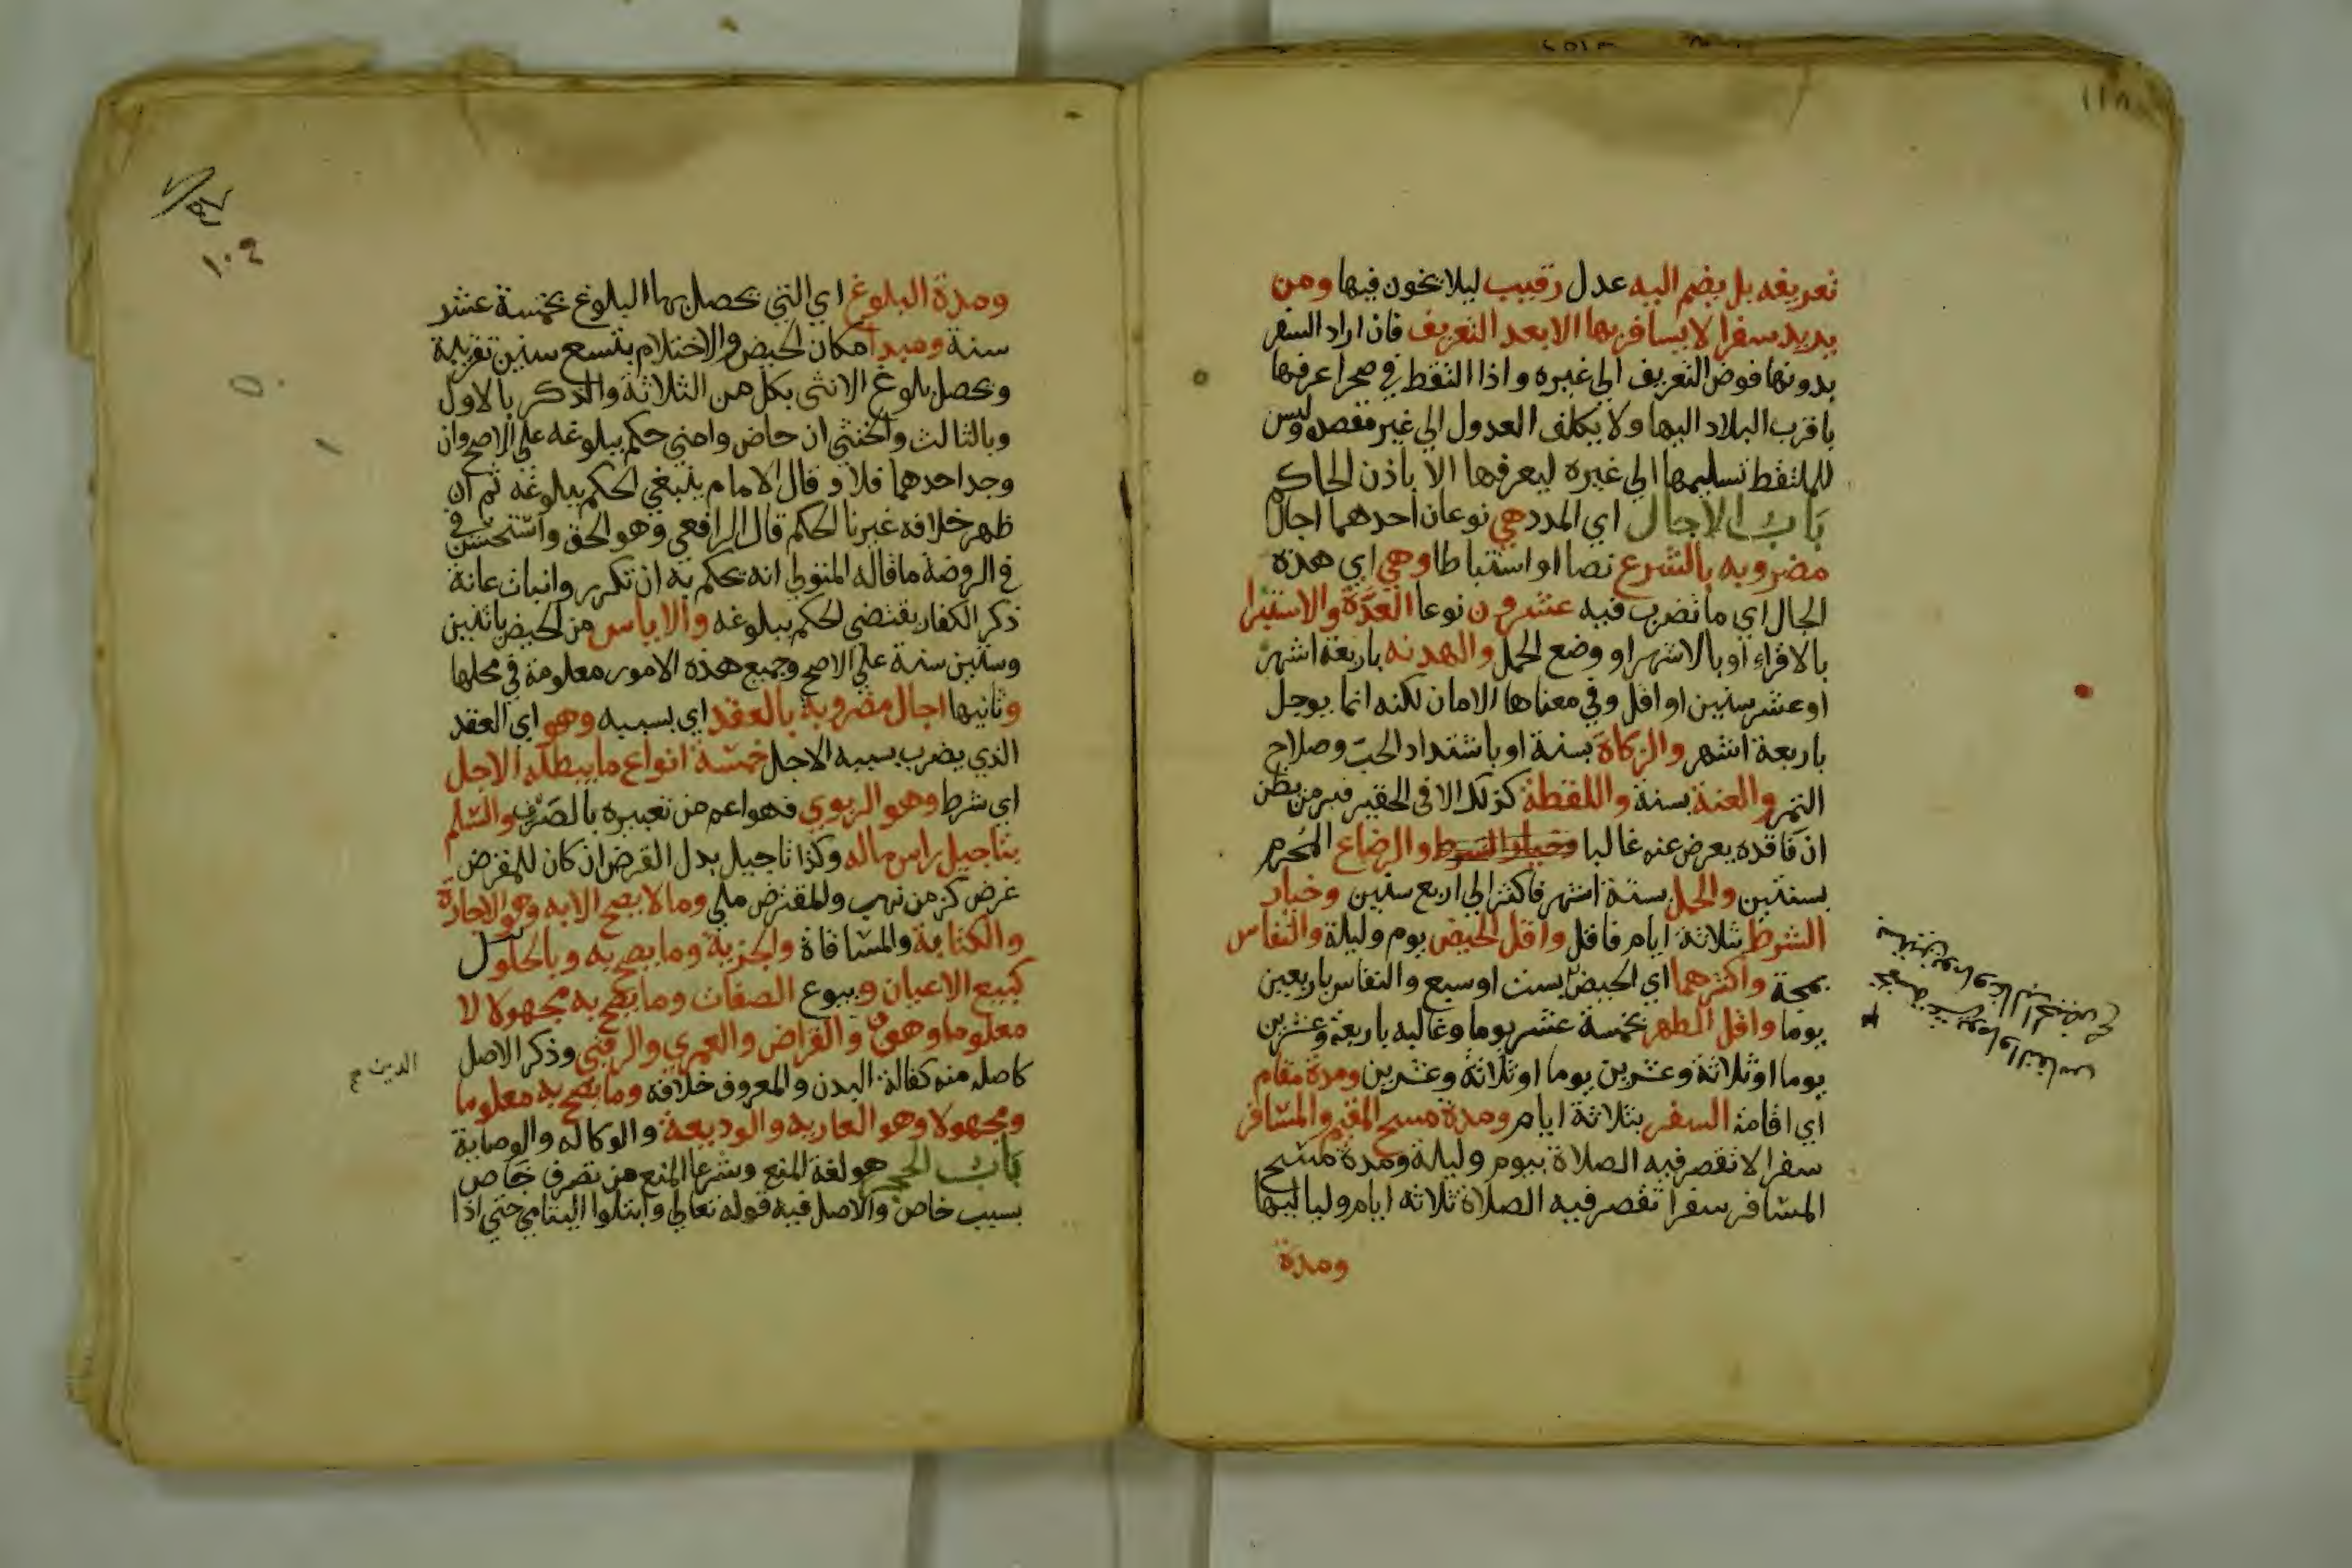 تعريفه بل يضم اليه عدل رقيب ليلا يخون فيها ومن
يريد سفرا لا يسافر بها الا بعد التعريف فان اراد السفر
بدونها فوض التعريف الي غيره واذا التقط في صحرا عرفها
باقرب البلاد اليها ولا يكلف العدول الي غير مقصده وليس
للملتقط تسليمها الي غيره ليعرفها الا باذن الحاكم
باب الاجال اي المدد هي نوعان احدهما اجال
مضروبه بالشرع نصا او استنباطا وهي اي هذه
الجال اي ما تضرب فيه عشرون نوعا العدة والاستبرا
بالاقراء او بالاشهر او وضع الحمل والهدنه باربعة اشهر
او عشر سنين او اقل وفي معناها الامان لكنه انما يوجل
باربعة اشهر والزكاة بسنة او باشتداد الحب وصلاح
الثمر والعنة بسنة واللقطة كذلك الا في الحقير فبزمن يظن
ان فاقده يعرض عنه غالبا وخيار الشرط والرضاع المحرم
بسنتين والحمل بستة اشهر فاكثر الي اربع سنين وخيار
الشرط بثلاثة ايام فاقل واقل الحيض يوم وليلة والنفاس
بمجة واكثرهما اي الحيض بست او سبع والنفاس باربعين
يوما واقل الطهر بخمسة عشر يوما وغالبه باربعة وعشرين
يوما او ثلاثة وعشرين يوما او ثلاثة وعشرين ومدة مقام
اي اقامة السفر بثلاثة ايام ومدة مسح المقيم والمسافر
سفرا لا تقصر فيه الصلاة بيوم وليلة ومدة مسح
المسافر سفرا تقصر فيه الصلاة ثلاثه ايام ولياليها
ومدة
بخمسة عشر يوما والنفاس
بستين يوما وغالب الحيض صح
١٠٩
ومدة البلوغ اي التي يحصل بها البلوغ بخمسة عشر
سنة ومبدا امكان الحيض والاحتلام بتسع سنين تقريبية
ويحصل بلوغ الانثى بكل من الثلاثة والذكر بالاول
وبالثالث والخنثي ان حاض وامني حكم ببلوغه علي الاصح وان
وجد احدهما فلا وقال الامام ينبغي الحكم ببلوغه ثم ان
ظهر خلافه غيرنا الحكم قال الرافعي وهو الحق واستحسن في
في الروضة ما قاله المتولي انه يحكم به ان تكرر وانبات عانة
ذكر الكفار يقتضي الحكم ببلوغه والاياس من الحيض باثنين
وستين سنة علي الاصح وجميع هذه الامور معلومة في محلها
وثانيها اجال مضروبة بالعقد اي بسببه وهو اي العقد
الذي يضرب بسببه الاجل خمسة انواع ما يبطله الاجل
اي شرط وهو الربوي فهو اعم من تعبيره بالصرف والسلم
بتاجيل راس ماله وكذا تاجيل بدل القرض ان كان للمقرض
غرض كزمن نهب والمقترض ملي وما لا يصح الا به وهو الاجارة
والكتابة والمساقاة والجزية وما يصح به وبالحلول
كبيع الاعيان وبيوع الصفات وما يصح به مجهولا لا
معلوما وهو والقراض والعمري والرقبي وذكر الاصل
كاصله منه كفالة البدن والمعروف خلافه وما يصح به معلوما
ومجهولا وهو العاريه والوديعة والوكاله والوصاية
باب الحجر هو لغة المنع وشرعا المنع من تصرف خاص
بسبب خاص والاصل فيه قوله تعالي وابتلوا اليتامي حتي اذا